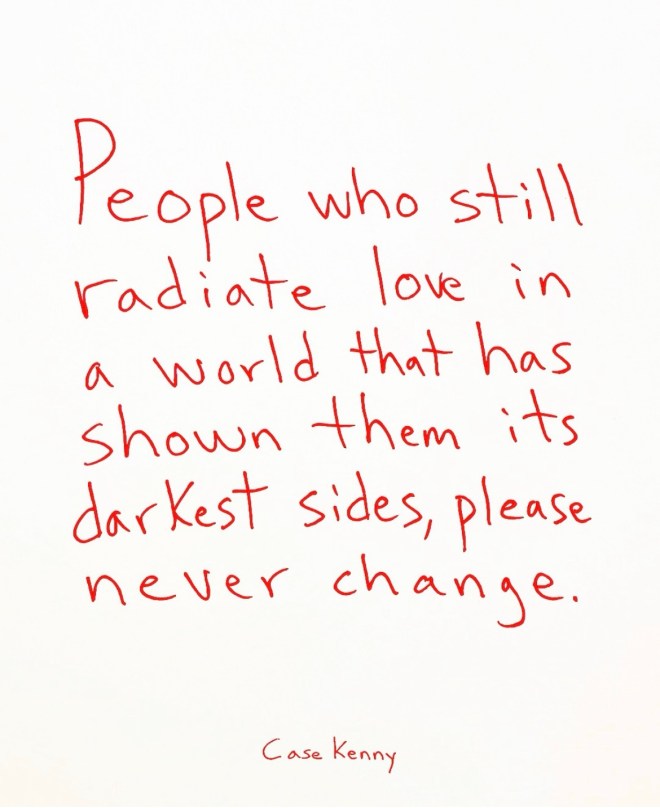 People who still
radiate love in
a world that has
shown them its
darkest sides, please
never change.
Case Kenny